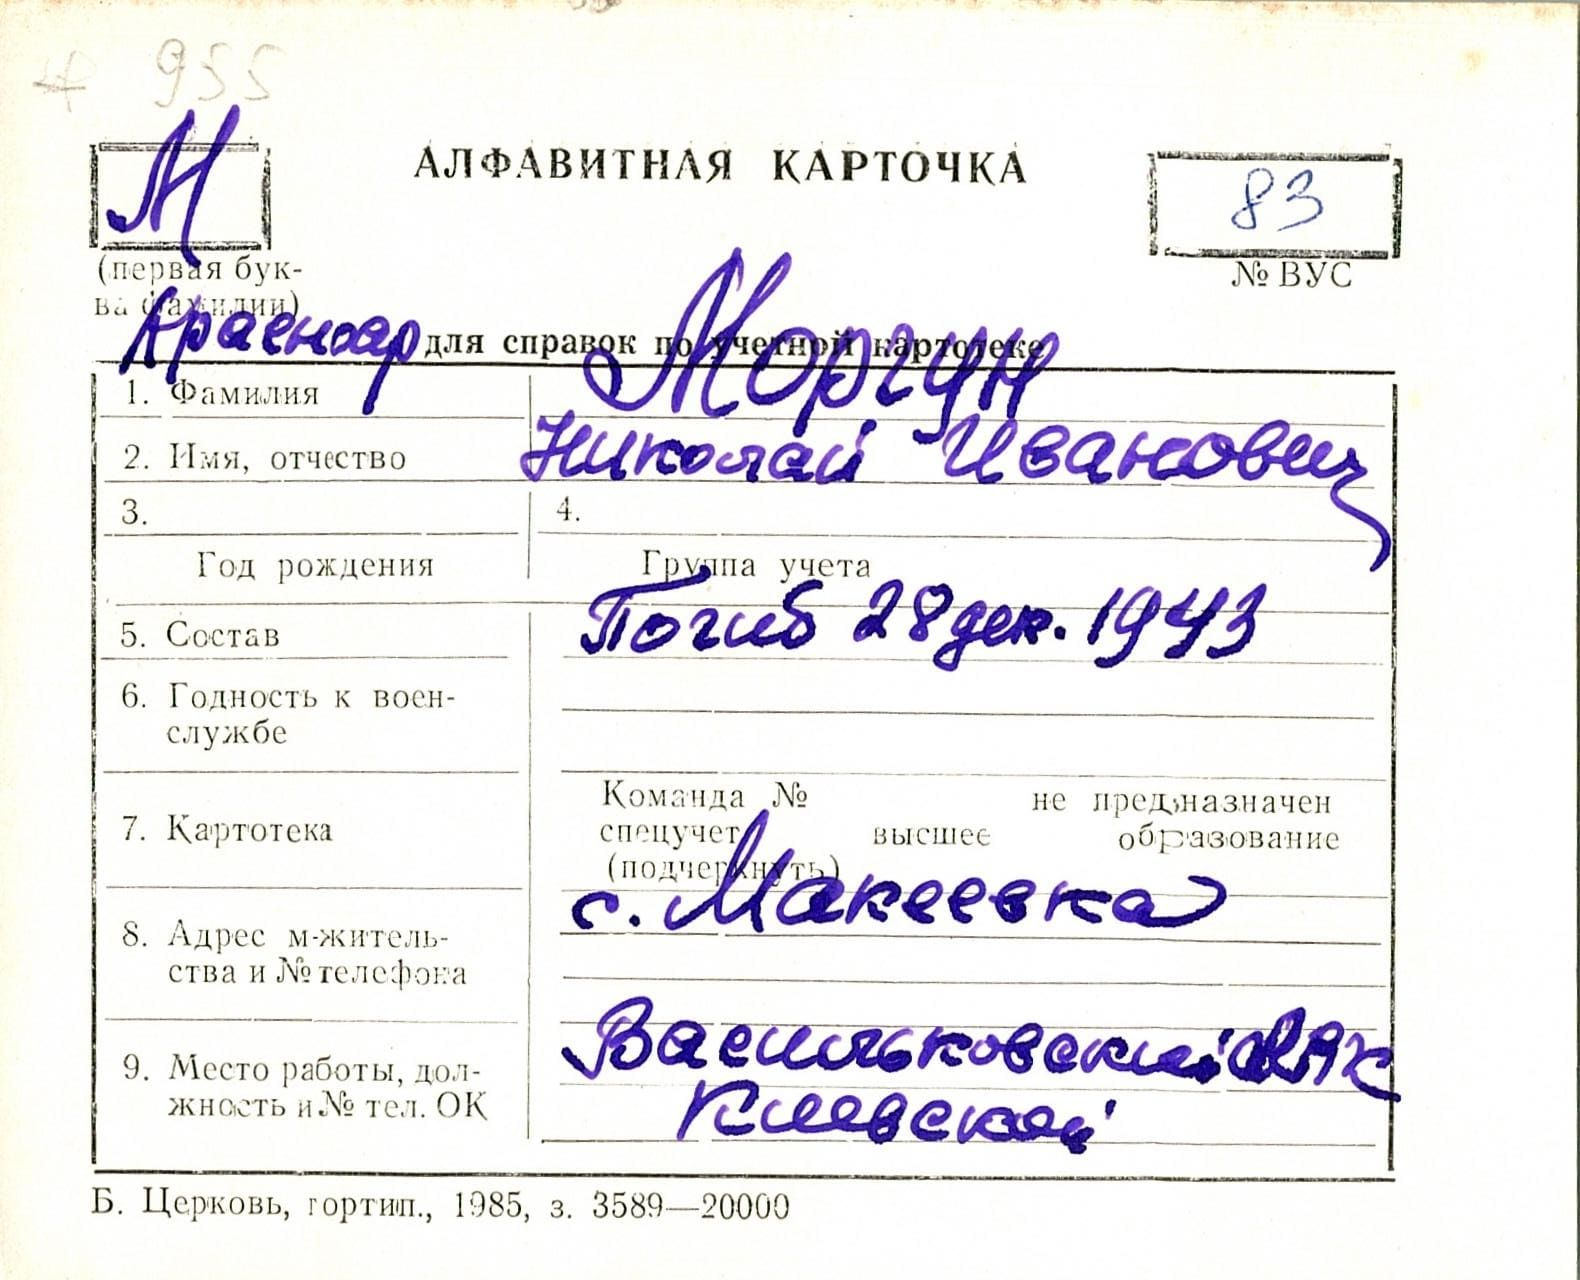 955
М
АЛФАВИТНАЯ КАРТОЧКА
83
(первая бук-
ва фамилии)
№ ВУС
для справок по учетной картотеке
1. Фамилия Моргун
2. Имя, отчество Николай Иванович
3. 4.
Год рождения Группа учета
5. Состав Погиб 28 дек. 1943
6. Годность к воен-
службе
7. Картотека
Команда № не предназначен
спецучет высшее образование
(подчеркнуть)
с. Макеевка
8. Адрес м-житель-
ства и № телефона
Васильковский
9. Место работы, дол-
жность и № тел. ОК
Киевской
Б. Церковь, гортип., 1985, з. 3589—20000